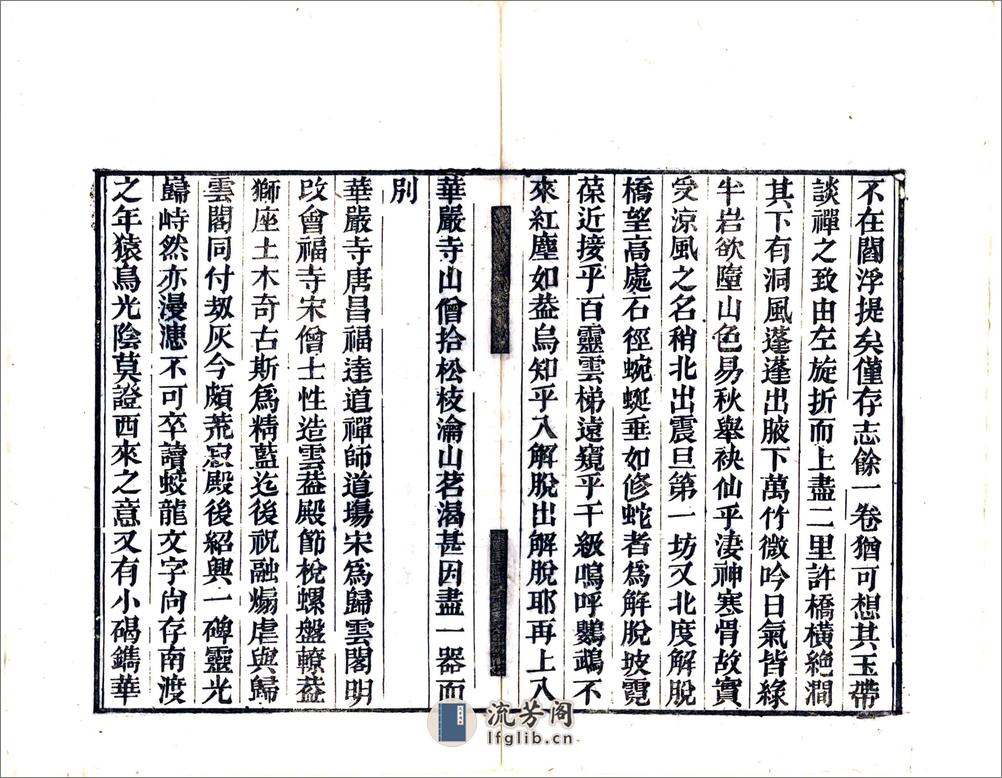 不在閻浮提矣僅存志餘一卷猶可想其玉帶
談禪之致由左旋折而上盡二里許橋橫絶澗
其下有洞風蓬蓬出腋下萬竹微吟日氣皆綠
半岩欲墮山色易秋舉袂仙乎淒神寒骨故實
受涼風之名稍北出震旦第一坊又北度解脫
橋望高處石徑蜿蜒垂如修蛇者爲解脫坡霓
葆近接乎百靈雲梯遠窺乎千級嗚呼鸚鵡不
來紅塵如葢烏知乎入解脫出解脫耶再上入
華嚴寺山僧拾松枝瀹山茗渴甚因盡一器而
別
華嚴寺唐昌福達道禪師道場宋爲歸雲閣明
改會福寺宋僧士性造雲葢殿節梲螺盤轑葢
獅座土木奇古斯爲精藍迄後祝融煽虐與歸
雲閣同付刼灰今頗荒寂殿後紹興一碑靈光
巋峙然亦漫漶不可卒讀蛟龍文字尚存南渡
之年猿鳥光陰莫證西來之意又有小碣鐫華
流芳阁
lfglib.cn